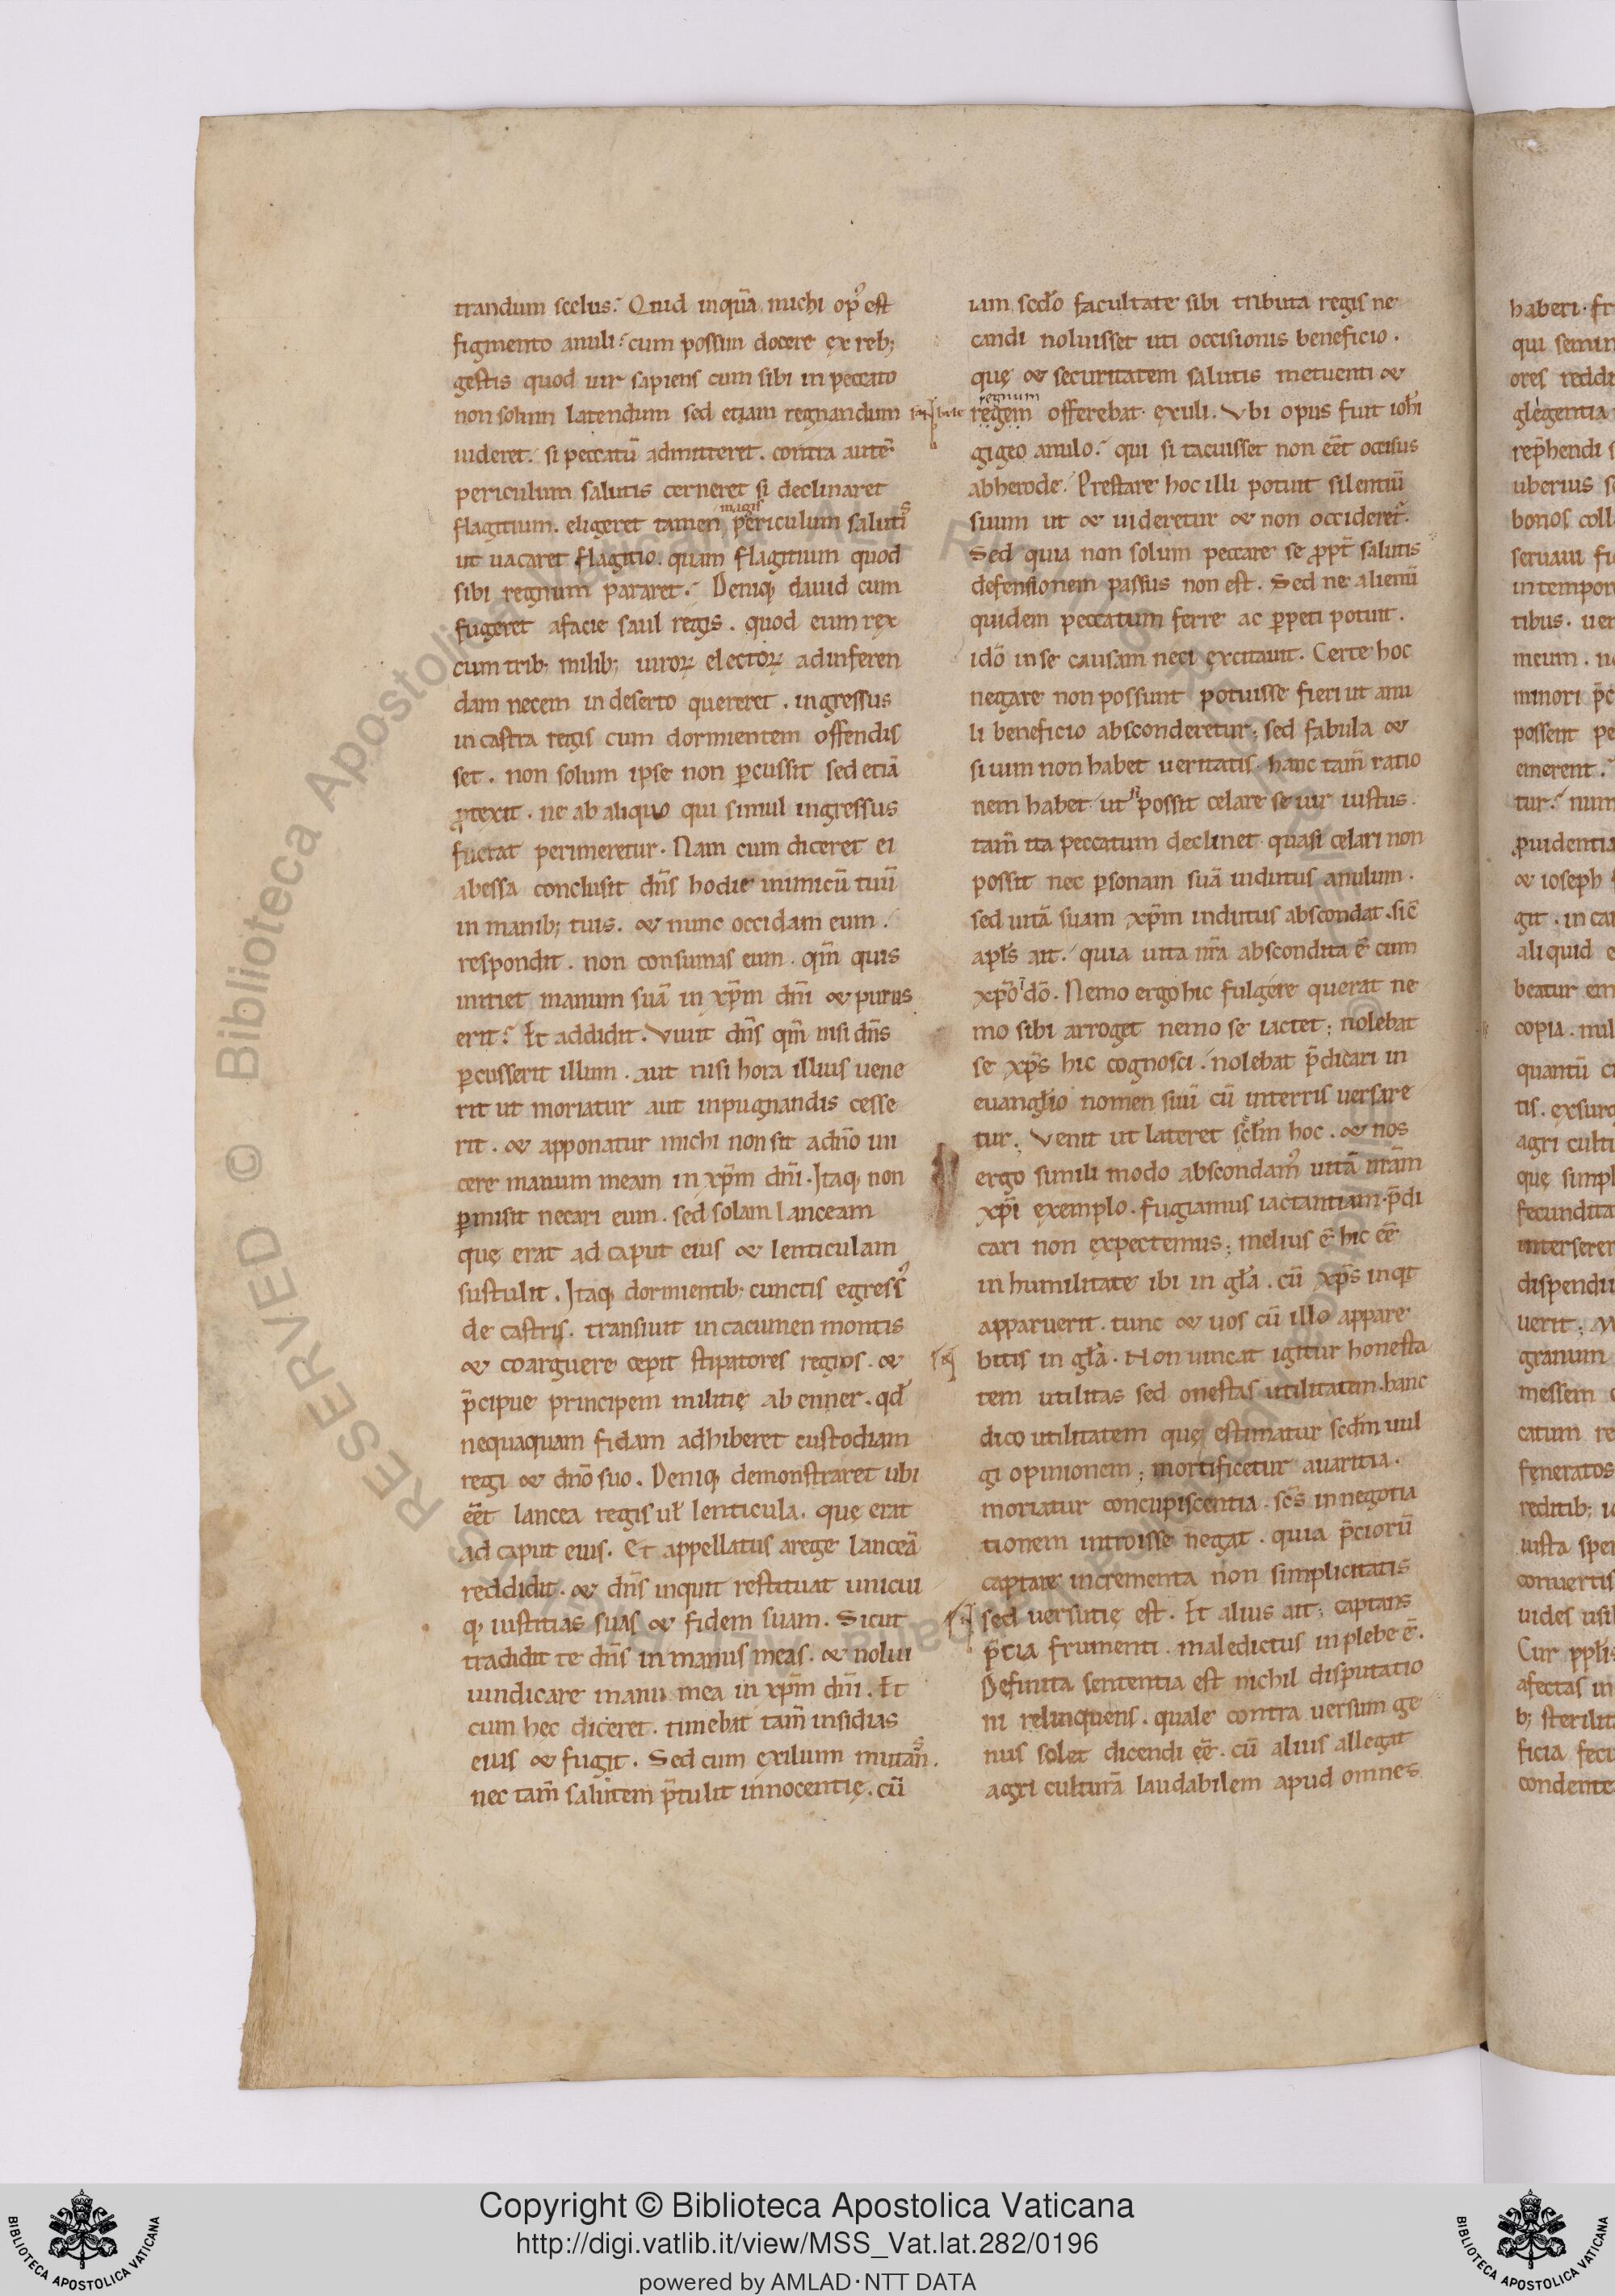 trandum scelus? Quid inquā michi op᾽ est
figmento anuli? cum possim docere ex reb;
gestis quod uir sapiens cum sibi in peccato
non solum latendum sed etiam regnandum
uideret. si peccatū admitteret. contra autē
periculum salutis cerneret si declinaret
flagitium. eligeret tamen magis periculum salutis
ut uacaret flagitio. quam flagitium quod
sibi regnum pararet. Deniq; dauid cum
fugeret afacie saul regis. quod eum rex
cum trib; milib; uiroꝝ electoꝝ adinferen
dam necem in deserto quereret. ingressus
in castra regis cum dormientem offendis
set. non solum ipse non ꝑcussit sed etiā
ꝓtexit. ne ab aliquo qui simul ingressus
fuerat perimeretur. Nam cum diceret ei
abessa conclusit dn̄s hodie inimicū tuū
in manib; tuis. & nunc occidam eum.
respondit. non consumas eum. qm̄ quis
iniciet manum suā in xp̄m dn̄i & purus
erit? Et addidit. Viuit dn̄s qm̄ nisi dn̄s
ꝑcusserit illum. aut nisi hora illius uene
rit ut moriatur aut inpugnandis cesse
rit. & apponatur michi non sit adn̄o ini
cere manum meam in xp̄m dn̄i. Itaq; non
ꝑmisit necari eum. sed solam lanceam
quę erat ad caput eius & lenticulam
sustulit. Itaq; dormientib; cunctis egress᾽
de castris. transiuit in cacumen montis
& coarguere cepit stipatores regios. &
p̄cipue principem militię abenner. qđ
nequaquam fidam adhiberet custodiam
regi & dn̄o suo. Deniq; demonstraret ubi
eēt lancea regis uł lenticula. quę erat
ad caput eius. Et appellatus arege lanceā
reddidit. & dn̄s inquit restituat unicui
q; iustitias suas & fidem suam. Sicut
tradidit te dn̄s in manus meas. & nolui
uindicare manu mea in xp̄m dn̄i. Et
cum hec diceret. timebat tam̄ insidias
eius & fugit. Sed cum exilium mutans.
nec tam̄ salutem p̄tulit innocentię. cū
iam scđo facultate sibi tributa regis ne
candi noluisset uti occisionis beneficio.
quę & securitatem salutis metuenti &
regnum
regem offerebat exuli. Vbi opus fuit ioħi
gigeo anulo? qui si tacuisset non eēt occisus
abherode. Prestare hoc illi potuit silentiū
suum ut & uideretur & non occideret.
Sed quia non solum peccare se ꝓpt̄ salutis
defensionem passus non est. Sed ne alienū
quidem peccatum ferre ac ꝑpeti potuit.
idō in se causam neci excitauit. Certe hoc
negare non possunt potuisse fieri ut anu
li beneficio absconderetur; sed fabula &
si uim non habet ueritatis. hanc tam̄ ratio
nem habet ut si possit celare se uir iustus.
tam̄ ita peccatum declinet quasi celari non
possit nec ꝑsonam suā indutus anulum.
sed uitā suam xp̄m indutus abscondat. sic̄
apłs ait. quia uita nr̄a abscondita ē cum
xp̄o i dō. Nemo ergo hic fulgere querat ne
mo sibi arroget nemo se iactet; nolebat
se xp̄s hic cognosci. nolebat p̄dicari in
euangłio nomen suū cū interris uersare
tur. Venit ut lateret sc̄łm hoc. & nos
ergo simili modo abscondam᾽ uitā nr̄am
xp̄i exemplo. fugiamus iactantiam. p̄di
cari non expectemus; melius ē hic eē
in humilitate ibi in gła. cū xp̄s inqt
apparuerit. tunc & uos cū illo appare
bitis in gła. Non uincat igitur honesta
tem utilitas sed onestas utilitatem. hanc
dico utilitatem quę estimatur scđm uul
gi opinionem; mortificetur auaritia.
moriatur concupiscentia. sc̄s in negotia
tionem introisse negat. quia p̄ciorū
captare incrementa non simplicitatis
sed uersutię est. Et alius ait; captans
p̄tia frumenti. maledictus in plebe ē.
Definita sententia est nichil disputatio
ni relinquens. quale contra uersum ge
nus solet dicendi eē. cū alius allegat
agri culturā laudabilem apud omnes
haberi. fr
qui semin
ores redd
glegentia
rep̄hendi s
uberius s
bonos coll
seruaui fi
in tempor
tibus. uen
meum. n
minori p̄c
possent pe
emerent.
tur. num
ꝓuidentia
& ioseph
git. in ca
aliquid e
beatur em
copia. mil
quantū c
tis. exsurg
agri culti
quę simpl
fecundita
interserer
dispendi
uerit;
granum
messem
catum re
feneratos
reditib;
iusta sper
conuertis
uides usi
Cur pplis
afectas in
b; sterilit
ficia fecu
condente
© Biblioteca Apostolica Vaticana ALL RIGHTS RESERVED
Copyright © Biblioteca Apostolica Vaticana
http://digi.vatlib.it/view/MSS_Vat.lat.282/0196
powered by AMLAD·NTT DATA
BIBLIOTECA APOSTOLICA VATICANA
BIBLIOTECA APOSTOLICA VATICANA